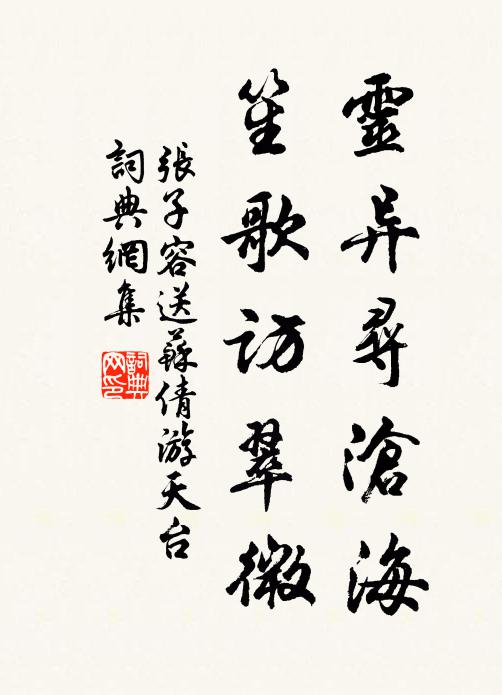 靈异尋滄海
笙歌訪翠微
張子容送蘇倩游天台
詞典網集
詞典网印